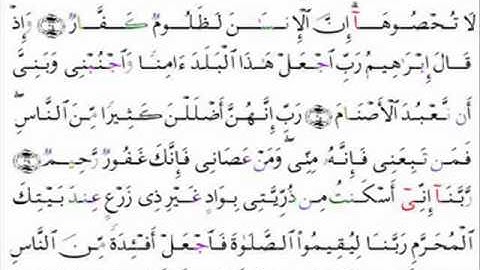 لَا تُحْصُوهَآ إِنَّ ٱلْإِنسَـٰنَ لَظَلُومٌ كَفَّارٌ ۝ وَإِذْ
قَالَ إِبْرَٰهِيمُ رَبِّ ٱجْعَلْ هَـٰذَا ٱلْبَلَدَ ءَامِنًا وَٱجْنُبْنِى وَبَنِىَّ
أَن نَّعْبُدَ ٱلْأَصْنَامَ ۝ رَبِّ إِنَّهُنَّ أَضْلَلْنَ كَثِيرًا مِّنَ ٱلنَّاسِ ۖ
فَمَن تَبِعَنِى فَإِنَّهُۥ مِنِّى ۖ وَمَنْ عَصَانِى فَإِنَّكَ غَفُورٌ رَّحِيمٌ ۝
رَّبَّنَآ إِنِّىٓ أَسْكَنتُ مِن ذُرِّيَّتِى بِوَادٍ غَيْرِ ذِى زَرْعٍ عِندَ بَيْتِكَ
ٱلْمُحَرَّمِ رَبَّنَا لِيُقِيمُوا۟ ٱلصَّلَوٰةَ فَٱجْعَلْ أَفْـِٔدَةً مِّنَ ٱلنَّاسِ